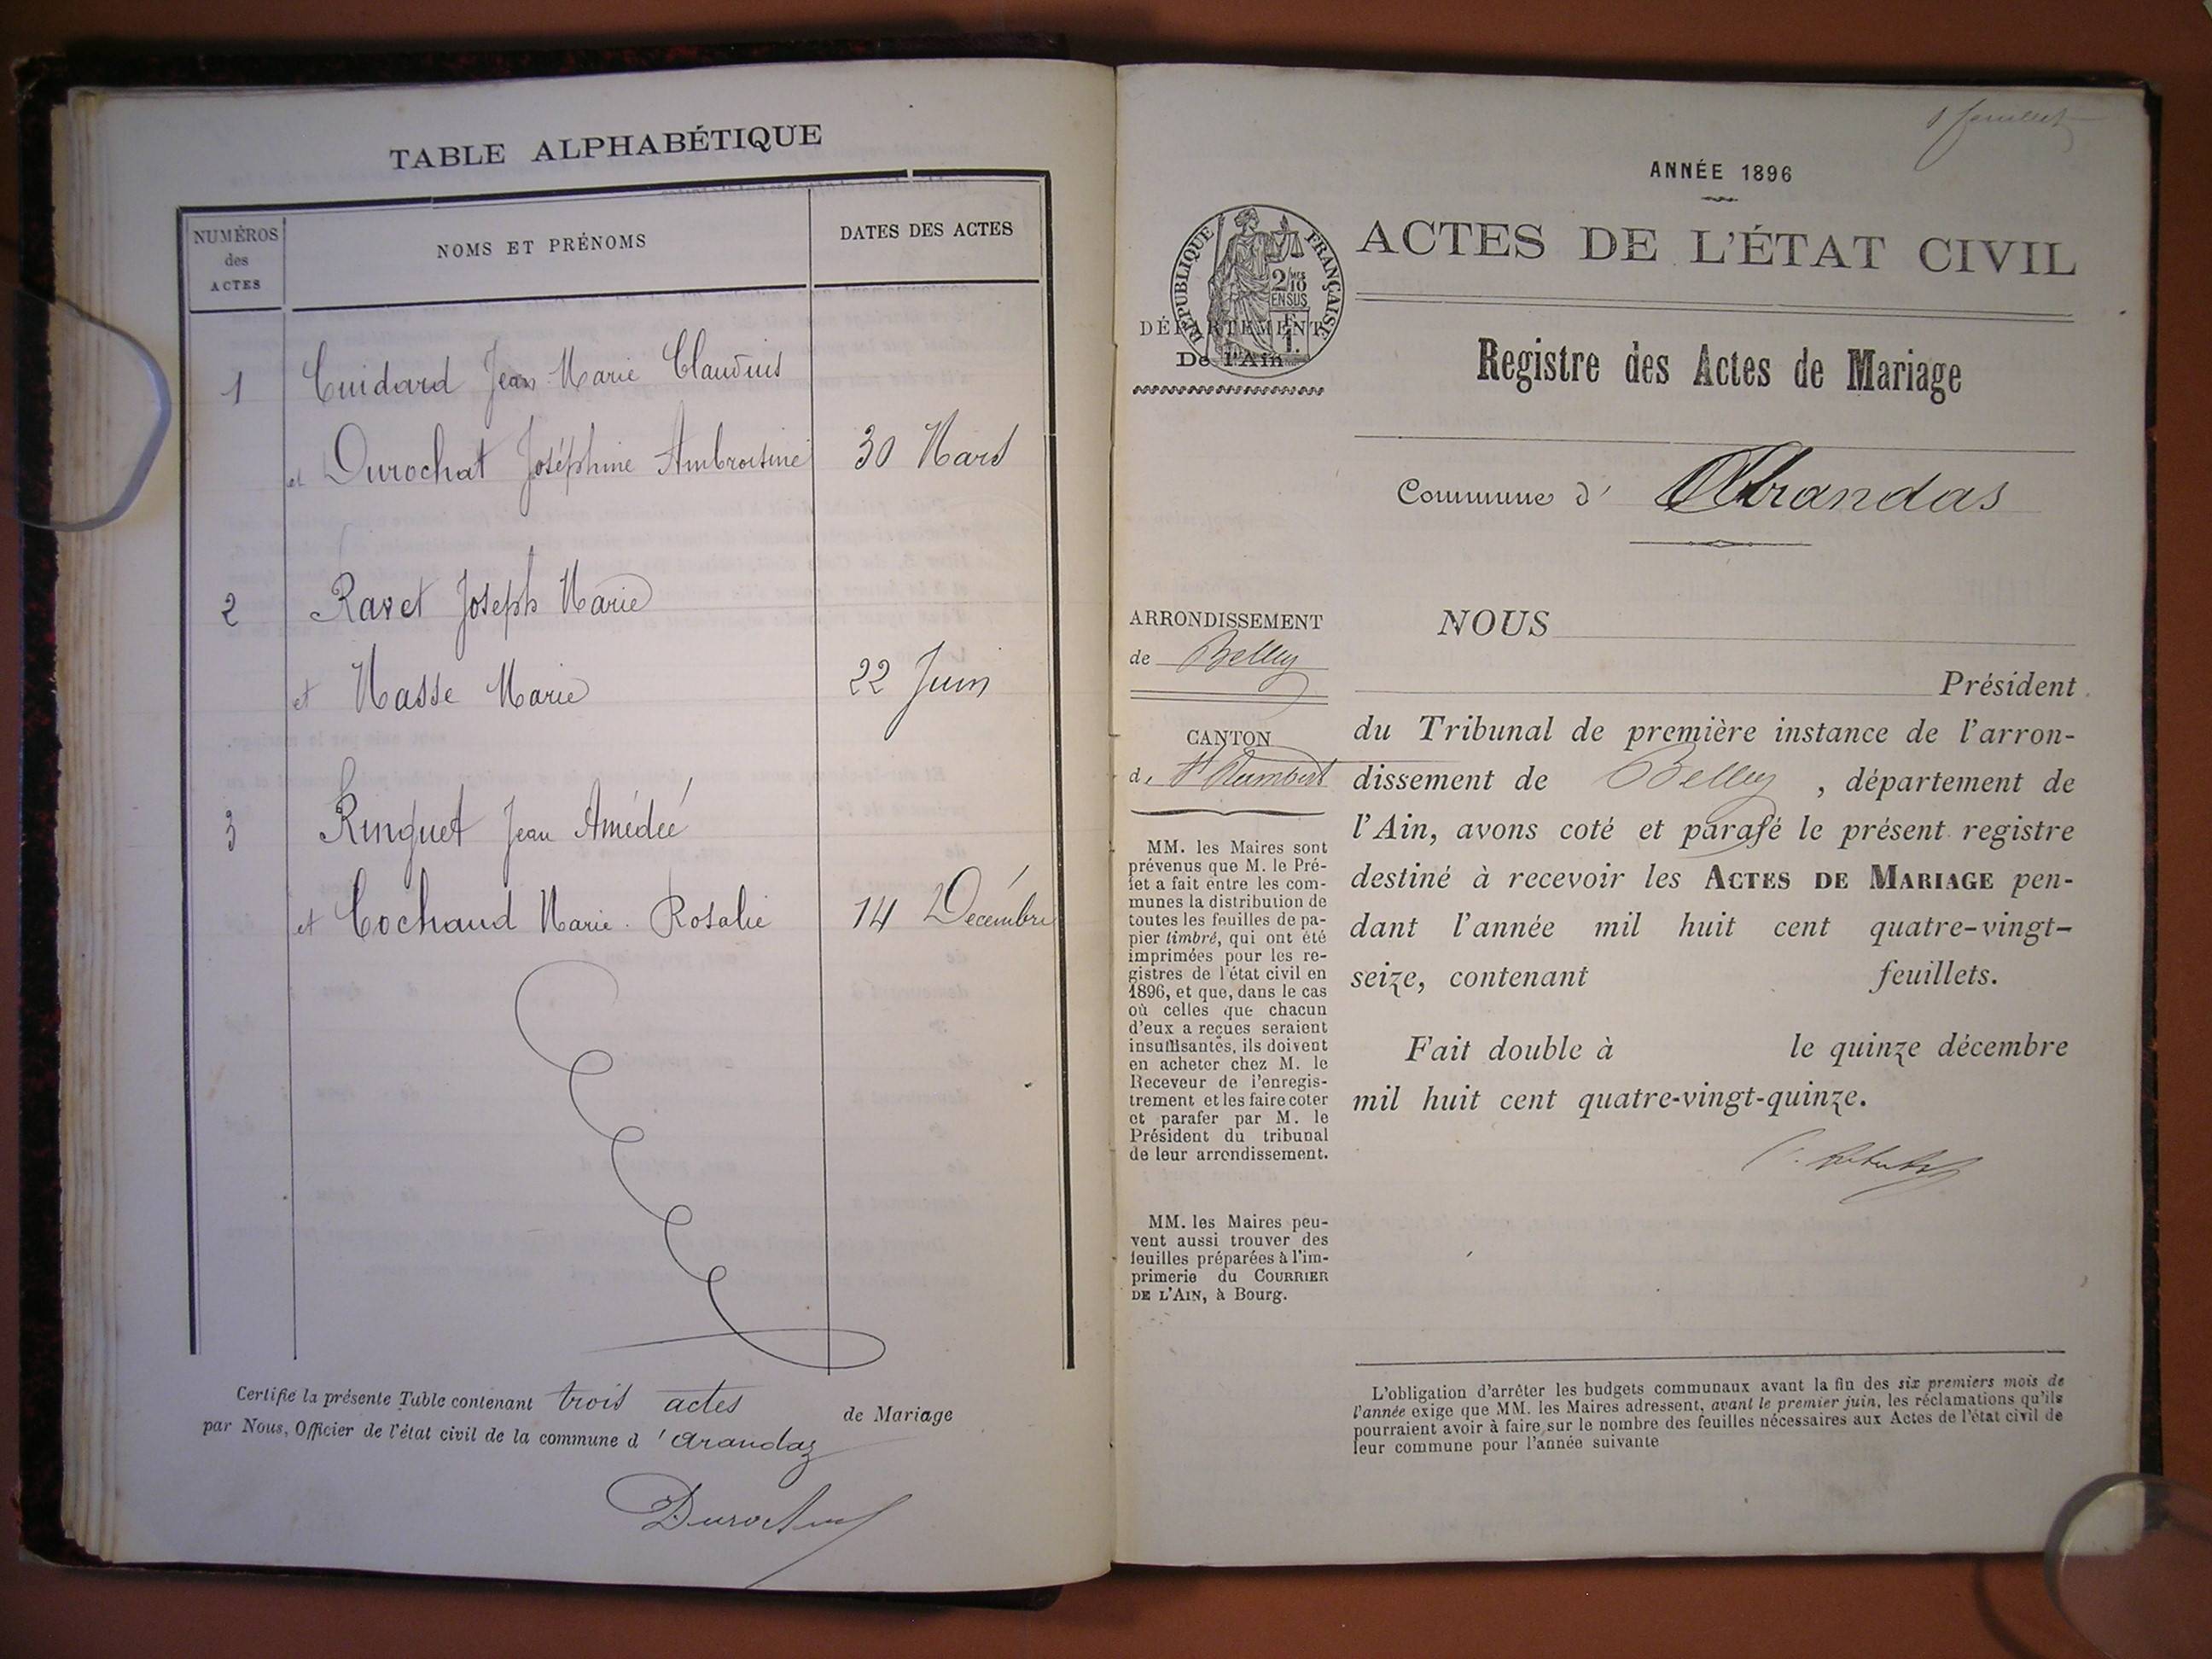 TABLE ALPHABÉTIQUE
NUMÉROS
des
ACTES
NOMS ET PRÉNOMS
DATES DES ACTES
1 Cuidard Jean Marie Claudius
et Durochat Joséphine Ambroisine 30 Mars
2 Ravet Joseph Marie
et Masse Marie 22 Juin
3 Ringuet Jean Amédée
et Cochaud Marie Rosalie 14 Décembre
Certifié la présente Table contenant trois actes de Mariage
par Nous, Officier de l'état civil de la commune d 'arandaz
Durochat
ANNÉE 1896
ACTES DE L'ÉTAT CIVIL
RÉPUBLIQUE FRANÇAISE
2/10 mes
EN SUS
1 F.
DÉPARTEMENT
De l'Ain
Registre des Actes de Mariage
Commune d' Arandas
ARRONDISSEMENT
de Belley
CANTON
de St Rambert
MM. les Maires sont
prévenus que M. le Pré-
fet a fait entre les com-
munes la distribution de
toutes les feuilles de pa-
pier timbré, qui ont été
imprimées pour les re-
gistres de l'état civil en
1896, et que, dans le cas
où celles que chacun
d'eux a reçues seraient
insuffisantes, ils doivent
en acheter chez M. le
Receveur de l'enregis-
trement et les faire coter
et parafer par M. le
Président du tribunal
de leur arrondissement.
MM. les Maires peu-
vent aussi trouver des
feuilles préparées à l'im-
primerie du COURRIER
DE L'AIN, à Bourg.
NOUS
Président
du Tribunal de première instance de l'arron-
dissement de Belley, département de
l'Ain, avons coté et parafé le présent registre
destiné à recevoir les ACTES DE MARIAGE pen-
dant l'année mil huit cent quatre-vingt-
seize, contenant feuillets.
Fait double à le quinze décembre
mil huit cent quatre-vingt-quinze.
L'obligation d'arrêter les budgets communaux avant la fin des six premiers mois de
l'année exige que MM. les Maires adressent, avant le premier juin, les réclamations qu'ils
pourraient avoir à faire sur le nombre des feuilles nécessaires aux Actes de l'état civil de
leur commune pour l'année suivante